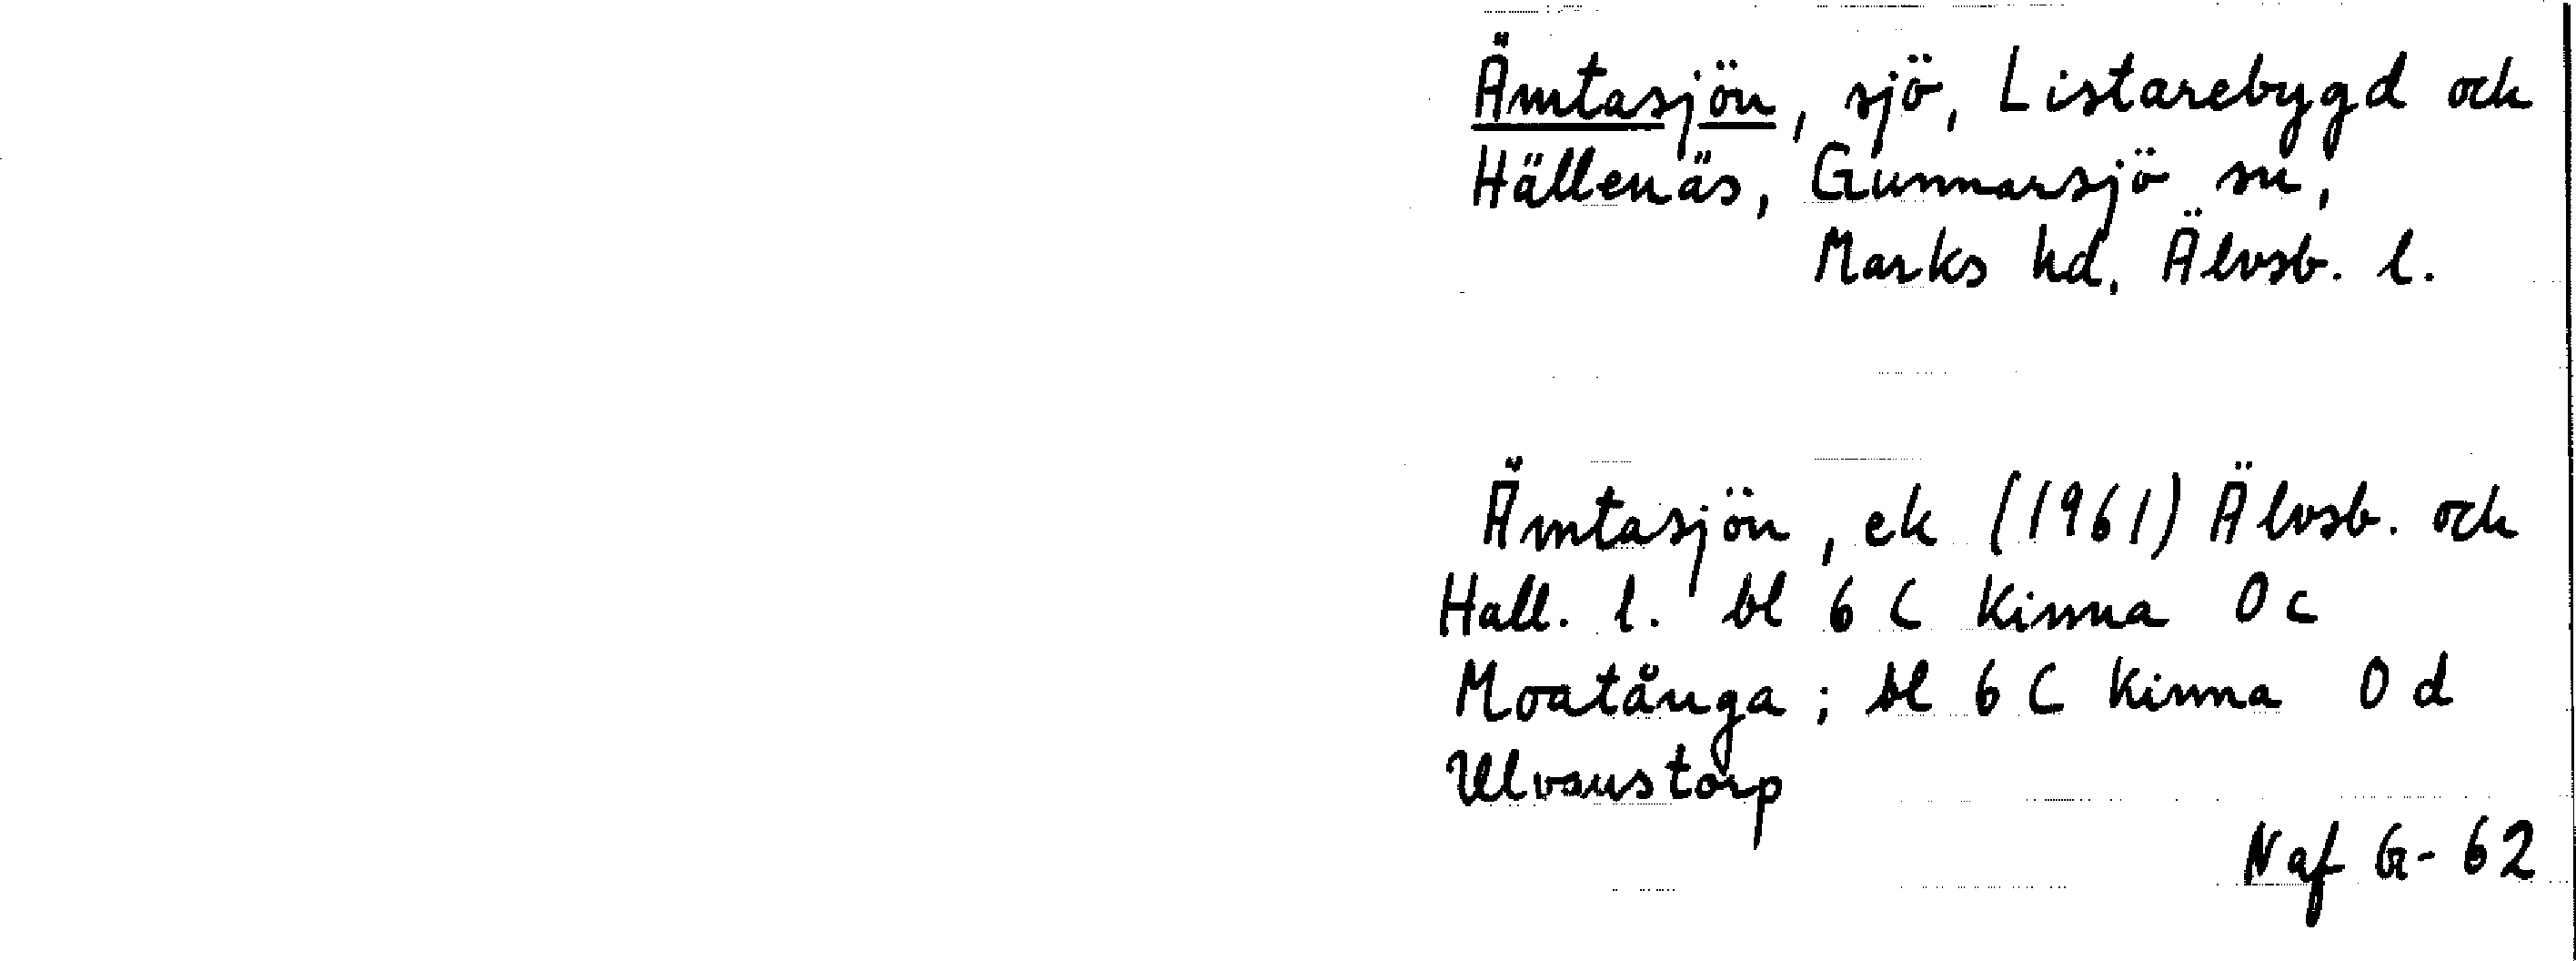 Ämtasjön, sjö, Listarebygd och
Hällenäs, Gunnarsjö sn,
Marks hd, Älvsb. l.
Ämtasjön, ek (1961) Älvsb. och
Hall. l. bl 6 C Kinna 0 c
Moatånga; bl 6 C Kinna 0 d
Ulvanstorp
Naf G-62